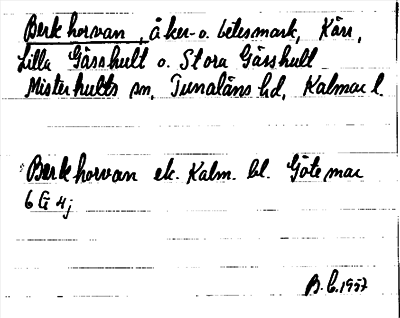 Berkhorvan, åker- o. betesmark, Kärr,
Lilla Gässhult o. Stora Gässhult
Misterhults sn, Tunaläns hd, Kalmar l.
Berkhorvan ek. Kalm. bl. Götemar
6 G 4 j
B. L. 1957